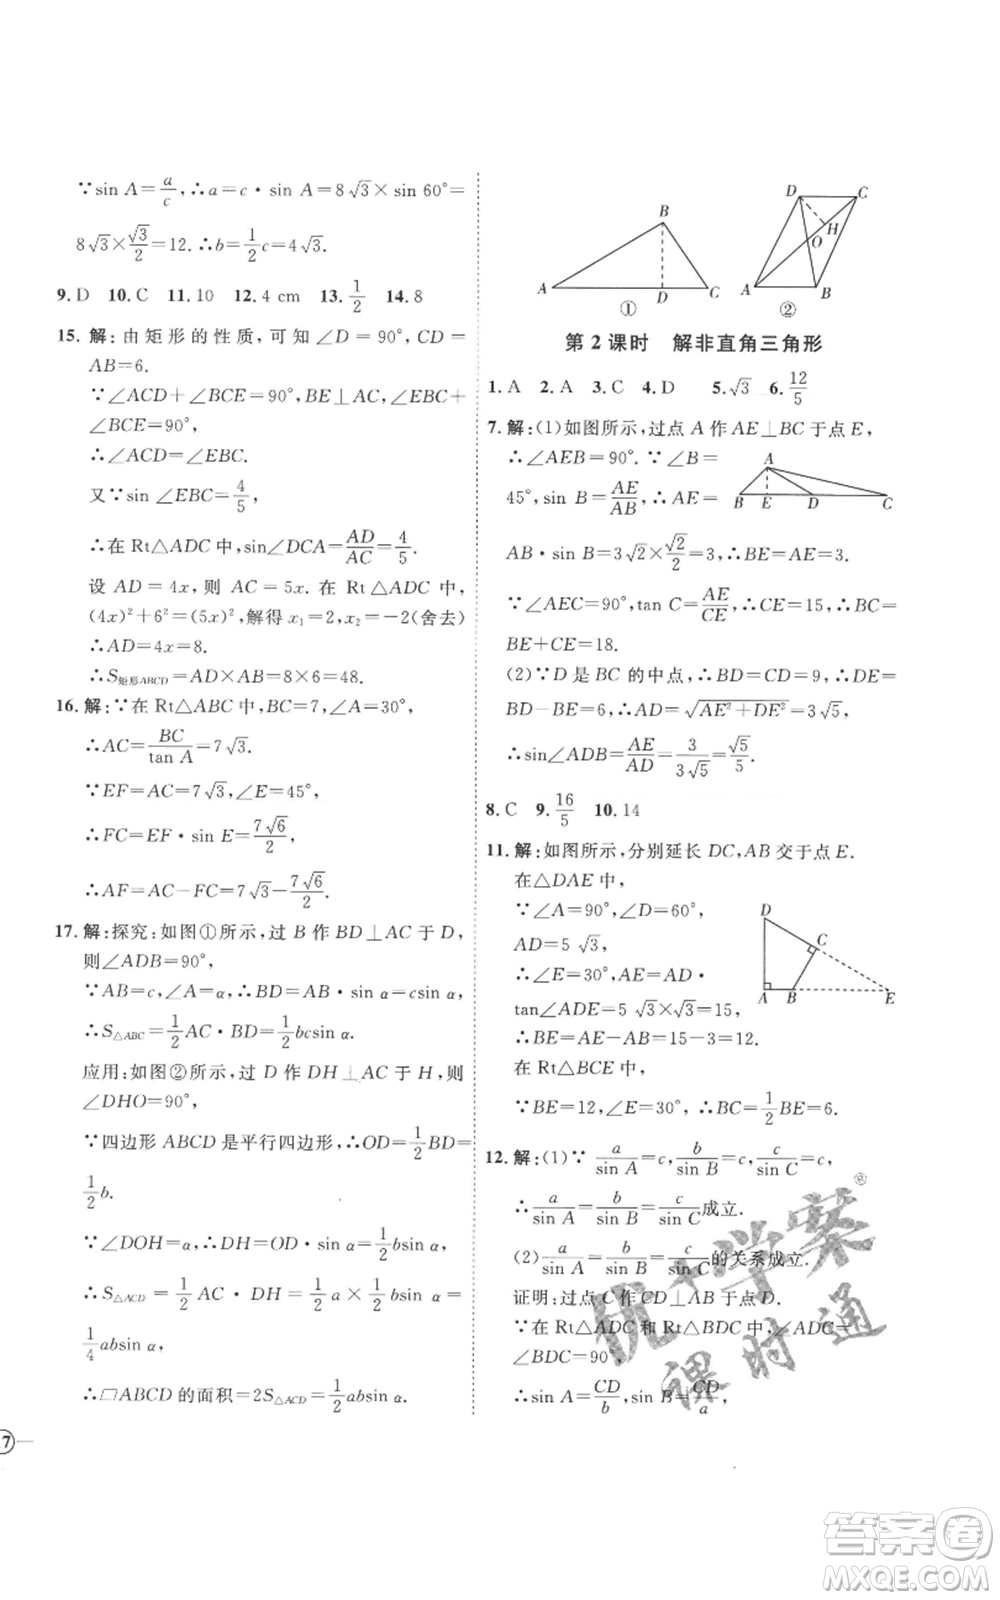 ∵sin A=a/c,∴a=c·sin A=8√3×sin 60°=
8√3×√3/2=12.∴b=1/2c=4√3.
9.D 10.C 11.10 12.4 cm 13.1/2 14.8
15.解:由矩形的性质,可知∠D=90°,CD=
AB=6.
∵∠ACD+∠BCE=90°,BE⊥AC,∠EBC+
∠BCE=90°,
∴∠ACD=∠EBC.
又∵sin∠EBC=4/5,
∴在 Rt△ADC 中,sin∠DCA=AD/AC=4/5.
设 AD=4x,则 AC=5x.在 Rt△ADC 中,
(4x)²+6²=(5x)²,解得x₁=2,x₂=-2(舍去)
∴AD=4x=8.
∴S矩形ABCD=AD×AB=8×6=48.
16.解:∵在 Rt△ABC 中,BC=7,∠A=30°,
∴AC=BC/tan A=7√3.
∵EF=AC=7√3,∠E=45°,
∴FC=EF·sin E=7√6/2,
∴AF=AC-FC=7√3-7√6/2.
17.解:探究:如图①所示,过 B 作 BD⊥AC 于 D,
则∠ADB=90°,
∵AB=c,∠A=α,∴BD=AB·sin α=csin α,
∴S△ABC=1/2AC·BD=1/2bcsin α.
应用:如图②所示,过 D 作 DH⊥AC 于 H,则
∠DHO=90°,
∵四边形 ABCD 是平行四边形,∴OD=1/2BD=
1/2b.
∵∠DOH=α,∴DH=OD·sin α=1/2bsin α,
∴S△ACD=1/2AC·DH=1/2a·1/2bsin α=
1/4absin α,
∴▱ABCD 的面积=2S△ACD=1/2absin α.
7
B
A
D
C
①
D
C
H
O
A
B
②
第 2 课时 解非直角三角形
1.A 2.A 3.C 4.D 5.√3 6.12/5
7.解:(1)如图所示,过点 A 作 AE⊥BC 于点 E,
∴∠AEB=90°.∵∠B=
45°,sin B=AE/AB,∴AE=
A
B E D C
AB·sin B=3√2×√2/2=3,∴BE=AE=3.
∵∠AEC=90°,tan C=AE/CE,∴CE=15,∴BC=
BE+CE=18.
(2)∵D 是 BC 的中点,∴BD=CD=9,∴DE=
BD-BE=6,∴AD=√(AE²+DE²)=3√5,
∴sin∠ADB=AE/AD=3/3√5=√5/5.
8.C 9.16/5 10.14
11.解:如图所示,分别延长 DC,AB 交于点 E.
在△DAE 中,
∵∠A=90°,∠D=60°,
AD=5√3,
∴∠E=30°,AE=AD·
tan∠ADE=5√3×√3=15,
D
C
A B E
∴BE=AE-AB=15-3=12.
在 Rt△BCE 中,
∵BE=12,∠E=30°,∴BC=1/2BE=6.
12.解:(1)∵a/sin A=c,b/sin B=c,c/sin C=c,
∴a/sin A=b/sin B=c/sin C成立.
(2)a/sin A=b/sin B=c/sin C的关系成立.
证明:过点 C 作 CD⊥AB 于点 D.
∵在 Rt△ADC 和 Rt△BDC 中,∠ADC=
∠BDC=90°,
∴sin A=CD/b,sin B=CD/a,
优+学案
课时通
答案圈
MXQE.COM